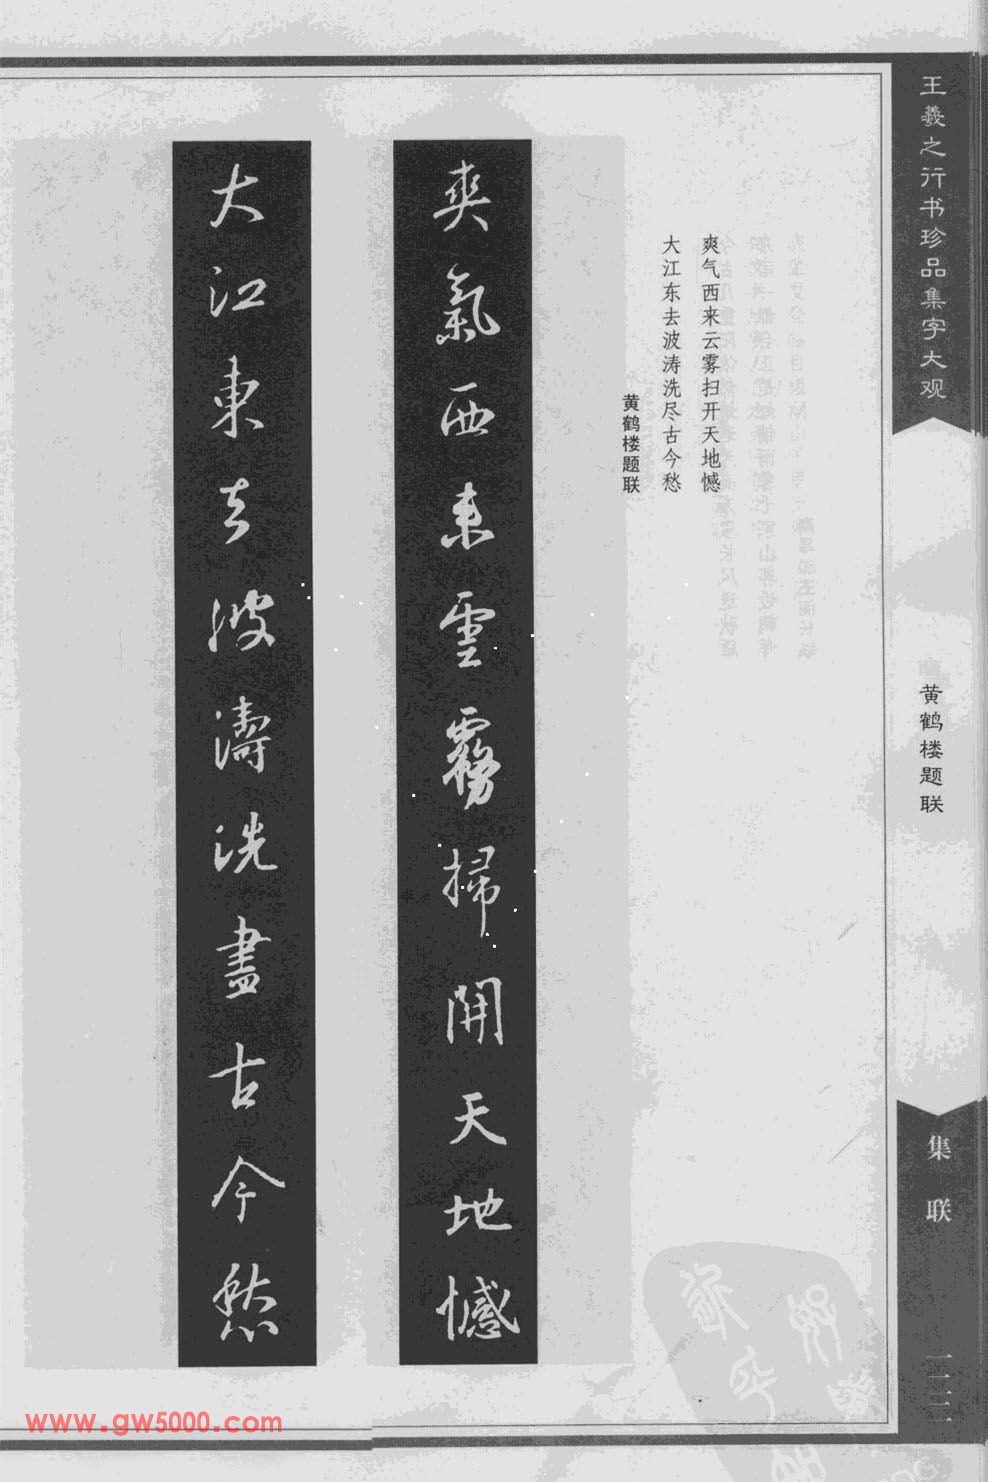 王羲之行书珍品集字大观
黄鹤楼题联
集联
一二三
爽气西来云雾扫开天地憾
大江东去波涛洗尽古今愁
黄鹤楼题联
爽氣西来雲霧掃開天地憾
大江東去波濤洗盡古今愁
www.gw5000.com